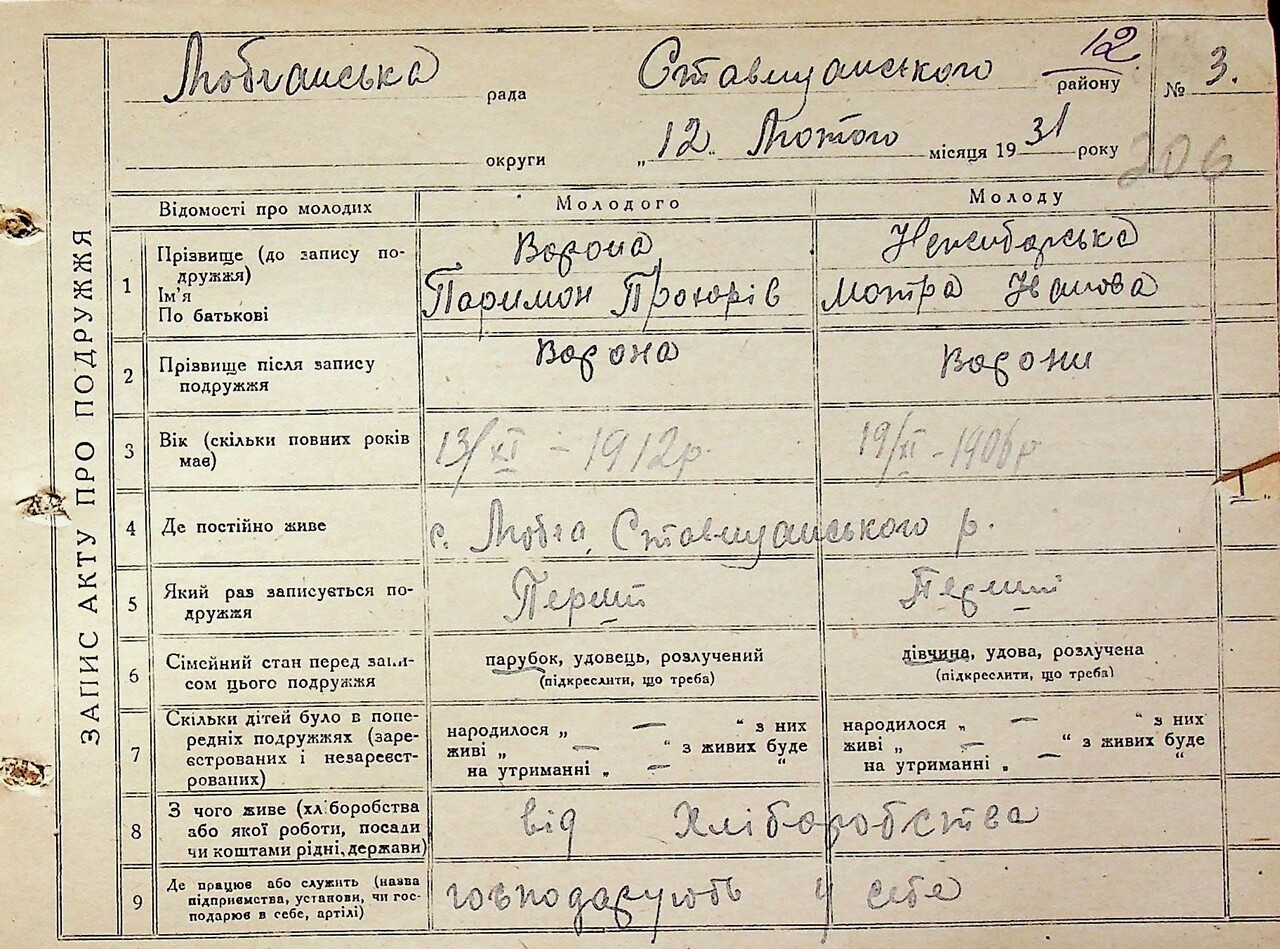 ЗАПИС АКТУ ПРО ПОДРУЖЖЯ
Любчанська рада
Ставищанського району
12
№ 3.
округи
„12" Лютого місяця 1931 року
206
Відомості про молодих
Молодого
Молоду
1
Прізвище (до запису по-
дружжя)
Ім'я
По батькові
Ворона
Паримон Прокорів
Мотра Іванова
2
Прізвище після запису
подружжя
Ворона
Ворони
3
Вік (скільки повних років
має)
13/XI - 1912р.
19/XI - 1906р
4
Де постійно живе
с. Любча, Ставищанського р.
1
5
Який раз записується по-
дружжя
Перший
Перший
6
Сімейний стан перед запи-
сом цього подружжя
парубок, удовець, розлучений
(підкреслити, що треба)
дівчина, удова, розлучена
(підкреслити, що треба)
7
Скільки дітей було в попе-
редніх подружжях (заре-
єстрованих і незареєст-
рованих)
народилося „ — " з них
живі „ — " з живих буде
на утриманні „ — "
народилося „ — " з них
живі „ — " з живих буде
на утриманні „ — "
8
З чого живе (хліборобства
або якої роботи, посади
чи коштами рідні, держави)
від Хліборобства
9
Де працює або служить (назва
підприємства, установи, чи гос-
подарює в себе, артілі)
господарують у себе